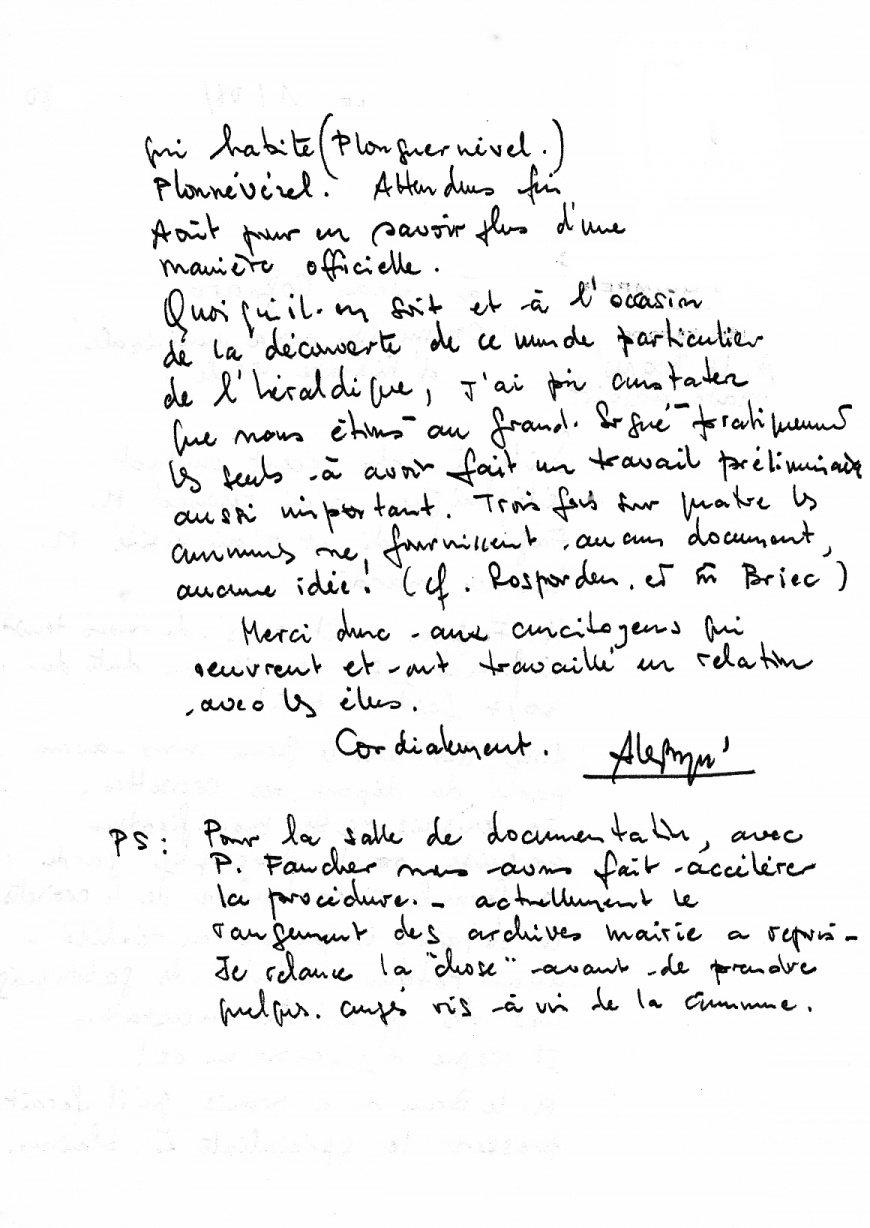 qui habite (Plonguernével.)
Plonnévézel. Attendons fin
Août pour en savoir plus d'une
manière officielle.
Quoiqu'il en soit et à l'occasion
de la découverte de ce monde particulier
de l'héraldique, j'ai pu constater
que nous étions au Grand. Ergué pratiquement
les seuls à avoir fait un travail préliminaire
aussi important. Trois fois sur quatre les
communes ne fournissent aucun document,
aucune idée! (cf. Rosporden, et m̄ Briec)
Merci donc aux concitoyens qui
oeuvrent et ont travaillé en relation
avec les élus.
Cordialement.
PS: Pour la salle de documentation, avec
P. Faucher nous avons fait accélérer
la procédure. - actuellement le
rangement des archives mairie a repris -
Je relance la "chose" avant de prendre
quelques congés vis à vis de la commune.